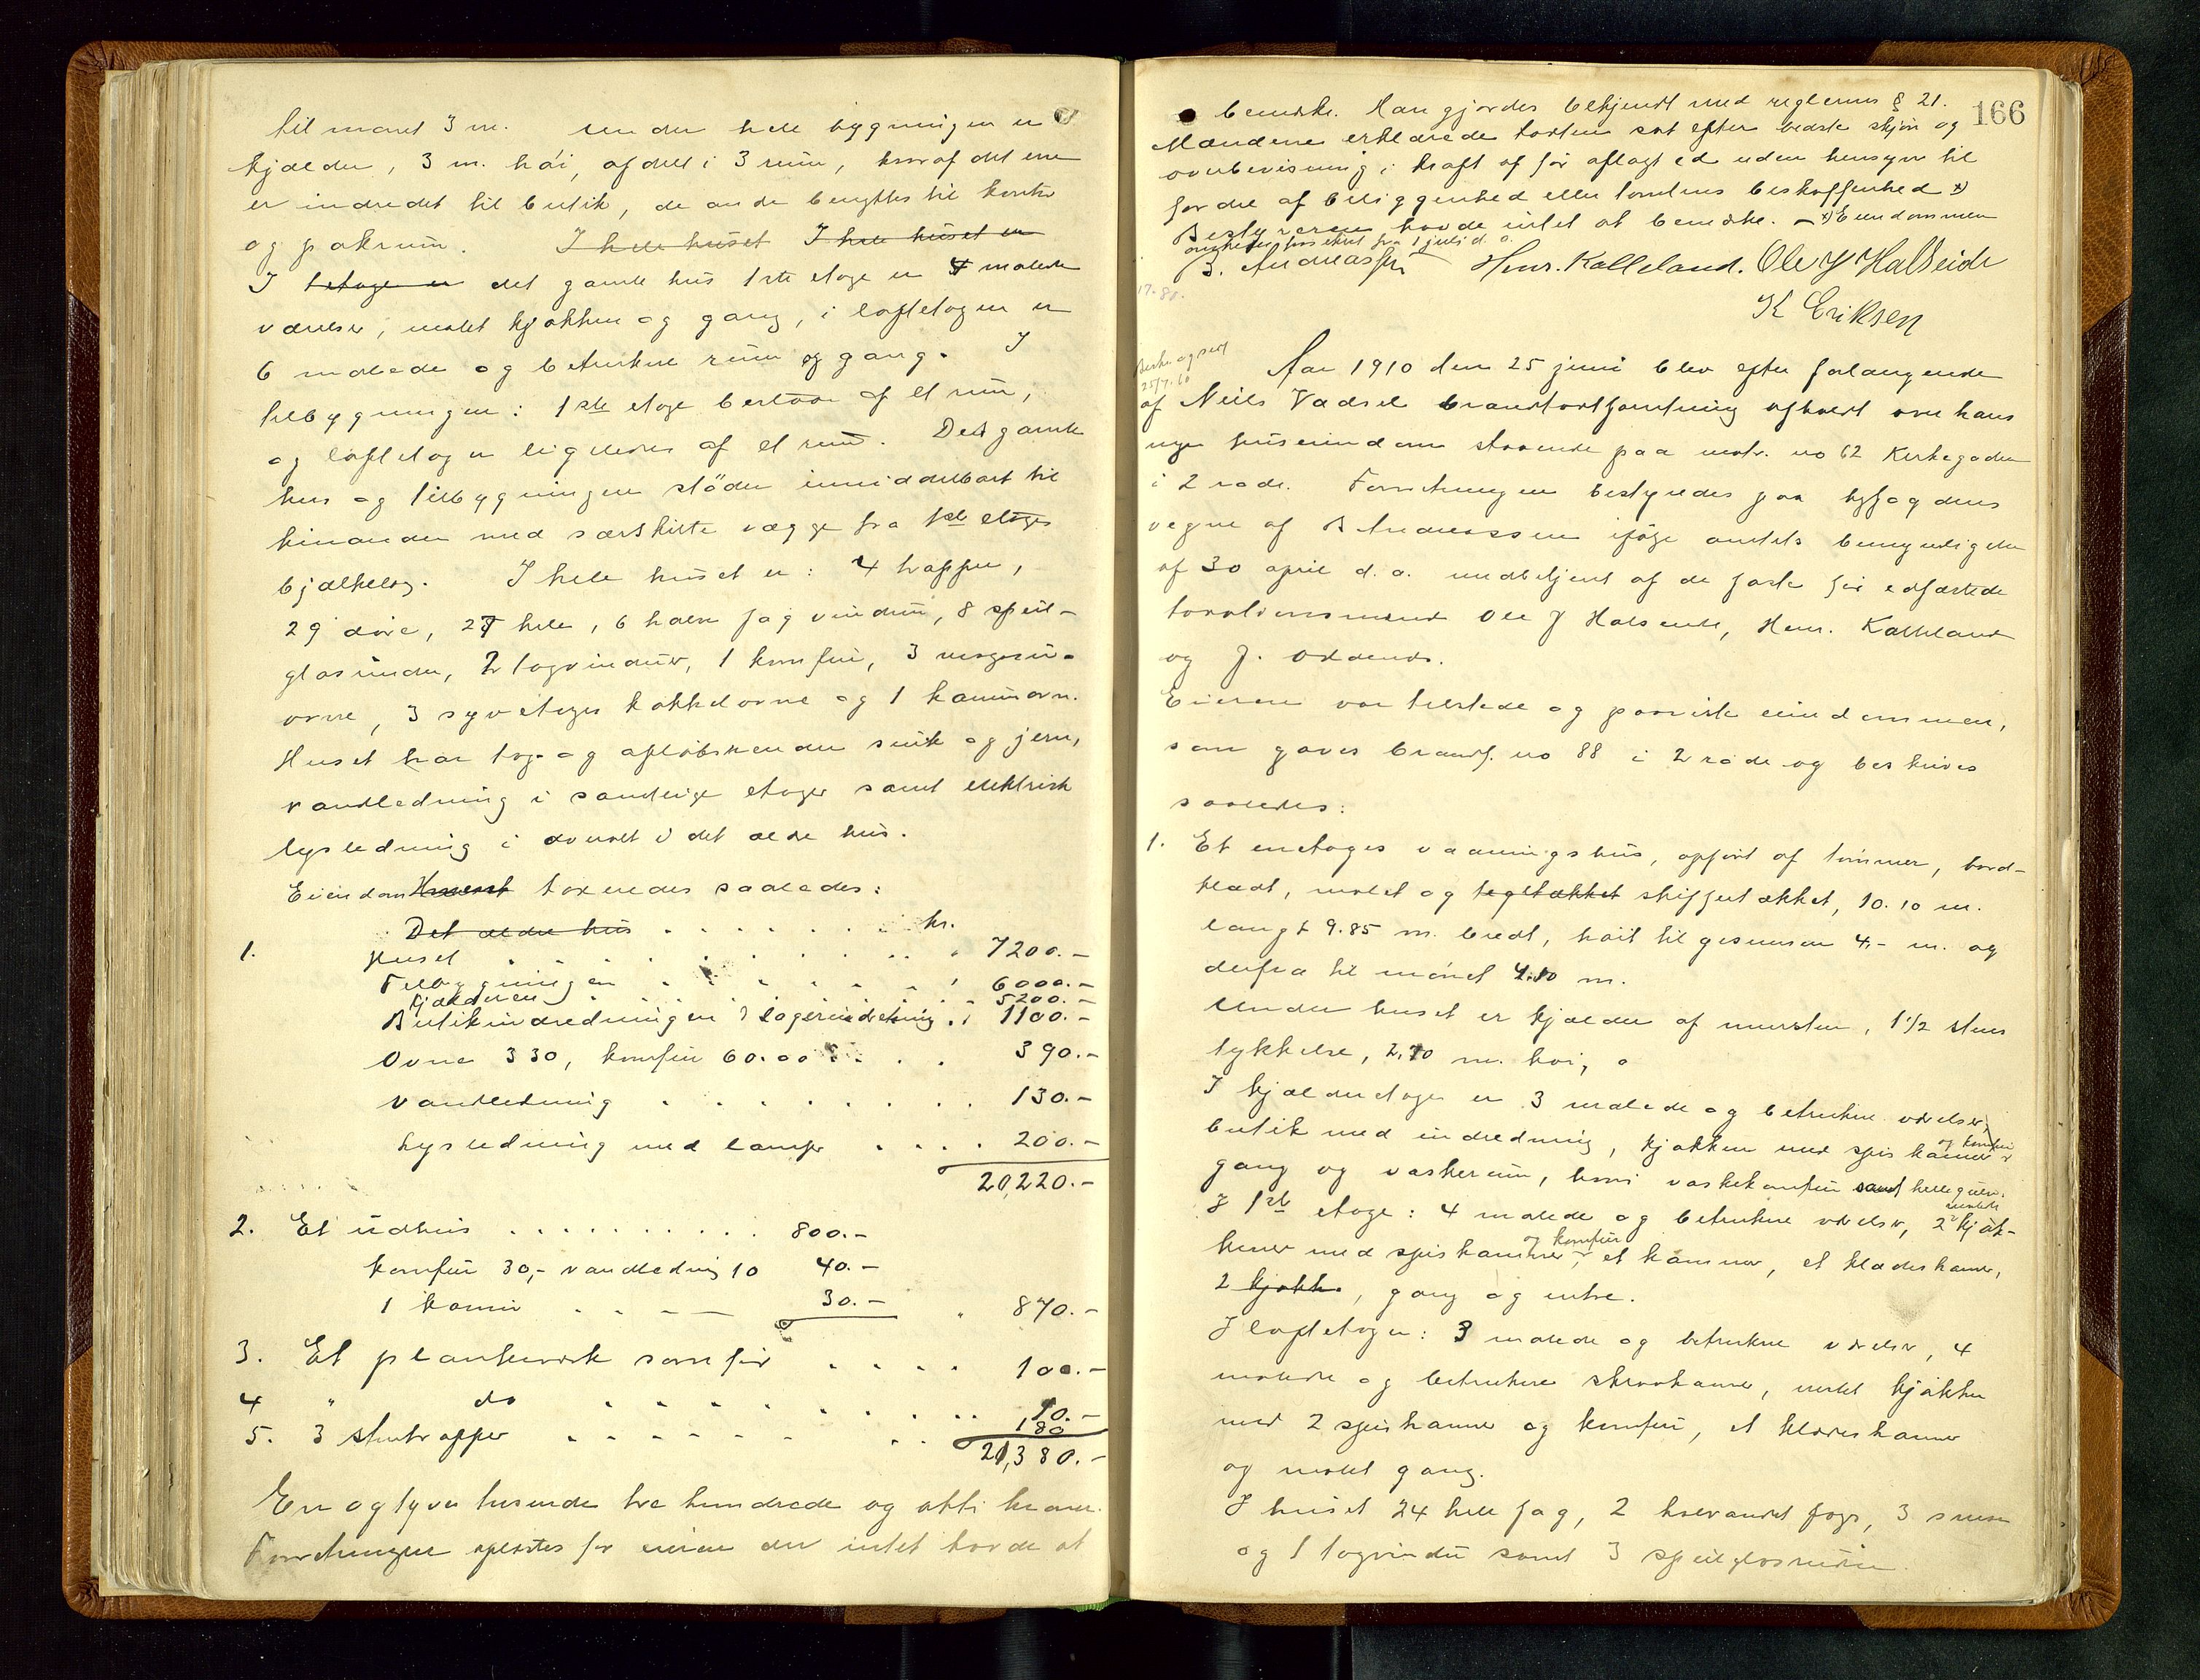 til mønet 3 m. Under hele bygningen er
kjælder, 3 m. høi, afdelt i 3 rum, hvoraf det ene
er indredet til butik, de andre benyttes til kontor
og pakrum. I hele huset I hele huset er
I 1 etage er det gamle hus 1ste etage er 4 malede
værelser, malet kjøkken og gang, i loftetagen er
6 malede og betrukne rum og gang. I
tilbygningen: 1ste etage bestaar af et rum,
og loftetagen ligeledes af et rum. Det gamle
hus og tilbygningen støder umiddelbart til
hinanden med særskilte vægge fra 1ste etages
bjælkelag. I hele huset er: 4 trapper,
29 døre, 27 hele, 6 halve fag vinduer, 8 speil-
glasruder, 2 tagvinduer, 1 komfur, 3 magasin-
ovne, 3 syvetages kakkelovne og 1 kaminovn.
Huset har tag- og afløbsrender sink og jern,
vandledning i samtlige etager samt elektrisk
lysledning overalt i det ældre hus.
Eiendom Huset taxeredes saaledes:
Det ældre hus . . . . . . kr.
1. Huset . . . . . . . . 7200.-
Tilbygningen . . . . . . 6000.-
Kjælderen . . . . . . . 5200.-
Butikindredningen & lagerindretning . 1100.-
Ovne 330, komfur 60.00 . . . 390.-
Vandledning . . . . . . . . 130.-
Lysledning med lamper . . . . 200.-
20,220.-
2. Et udhus . . . . . . . . . 800.-
komfur 30,- vandledning 10 40.-
1 kamin . . . . 30.- " 870.-
3. Et plankeværk som før . . . . 100.-
4 " do . . . . . . . . 10.-
5. 3 stentrapper . . . . . . . . 180
21,380.-
En og tyve tusende tre hundrede og otti kroner.
Forretningen oplæstes for eieren der intet havde at
166
bemerke. Han gjordes bekjendt med reglernes § 21.
Mændene erklærede taxten sat efter bedste skjøn og
overbevisning i kraft af før aflagt ed uden hensyn til
fordel af beliggenhed eller tomtens beskaffenhed x)
Bestyreren havde intet at bemerke. - x) Eiendommen
forsikret fra 1 juli d. a.
B. Andreassen Henr. Kalleland. Ole J Halseide
K Eriksen
17.80.
25/7.60
Aar 1910 den 25 juni blev efter forlangende
af Neils Vadset brandtaxtforretning afholdt over hans
nye huseiendom staaende paa matr. no 62 Kirkegaden
i 2 rode. Forretningen bestyredes paa byfogdens
vegne af B Andreassen ifølge amtets bemyndigelse
af 30 april d. a. medbetjent af de faste før edfæstede
taxationsmænd Ole J Halseide, Henr. Kalleland
og J. Oddenes.
Eieren var tilstede og paaviste eiendommen,
som gaves brandf. no 88 i 2 rode og beskrives
saaledes:
1. Et enetages vaaningshus, opført af tømmer, bord-
klædt, malet og tegltækket skiffertækket, 10.10 m.
langt 9.85 m. bredt, høit til gesimsen 4,- m. og
derfra til mønet 4.10 m.
Under huset er kjælder af mursten, 1 1/2 stens
tykkelse, 2,70 m. høi,
I kjælderetagen er 3 malede og betrukne værelser,
butik med indredning, kjøkken med spiskammer og komfur
gang og vaskerum, hvori vaskekomfur samt hellegulv.
I 1ste etage: 4 malede og betrukne værelser, 2 malede kjøk-
kener med spiskammer og komfur, et kammer, et klædeskammer,
2 kjøkk. , gang og entre.
I loftetagen: 3 malede og betrukne værelser, 4
malede og betrukne skraakamre, malet kjøkken
med 2 spiskamre og komfur, et klædeskammer
og malet gang.
I huset 24 hele fag, 2 halvandet fags, 3 smaa
og 1 tagvindu samt 3 speilglasruder.